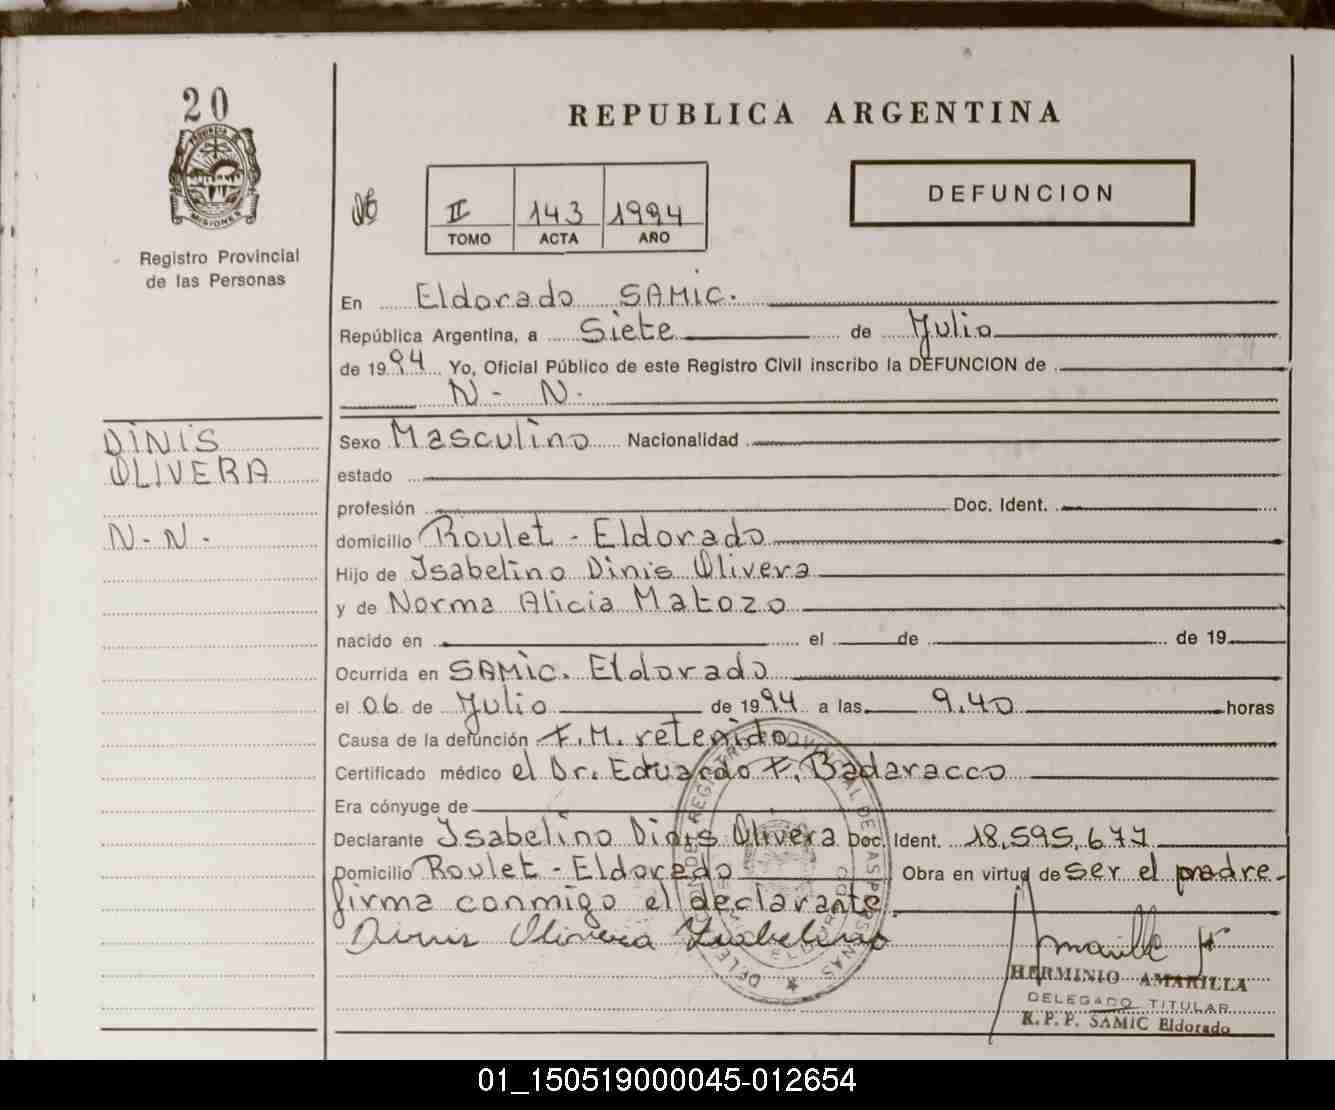 20
PROVINCIA DE
MISIONES
Registro Provincial
de las Personas
REPUBLICA ARGENTINA
II 143 1994
TOMO ACTA AÑO
DEFUNCION
En Eldorado SAMIC.
República Argentina, a Siete de Julio
de 1994 Yo, Oficial Público de este Registro Civil inscribo la DEFUNCION de
N - N.
DINIS
OLIVERA
N - N -
Sexo Masculino Nacionalidad
estado
profesión Doc. Ident.
domicilio Roulet - Eldorado
Hijo de Isabelino Dinis Olivera
y de Norma Alicia Matozo
nacido en el de de 19
Ocurrida en SAMIC. Eldorado
el 06 de Julio de 1994 a las 9.40 horas
Causa de la defunción F.M. retenido
Certificado médico el Dr. Eduardo F. Badaracco
Era cónyuge de
Declarante Isabelino Dinis Olivera Doc. Ident. 18.595.677
Domicilio Roulet - Eldorado Obra en virtud de ser el padre -
firma conmigo el declarante
Dinis Olivera Isabelino
HERMINIO AMARILLA
DELEGADO TITULAR
R.P.P. SAMIC Eldorado
01_150519000045-012654